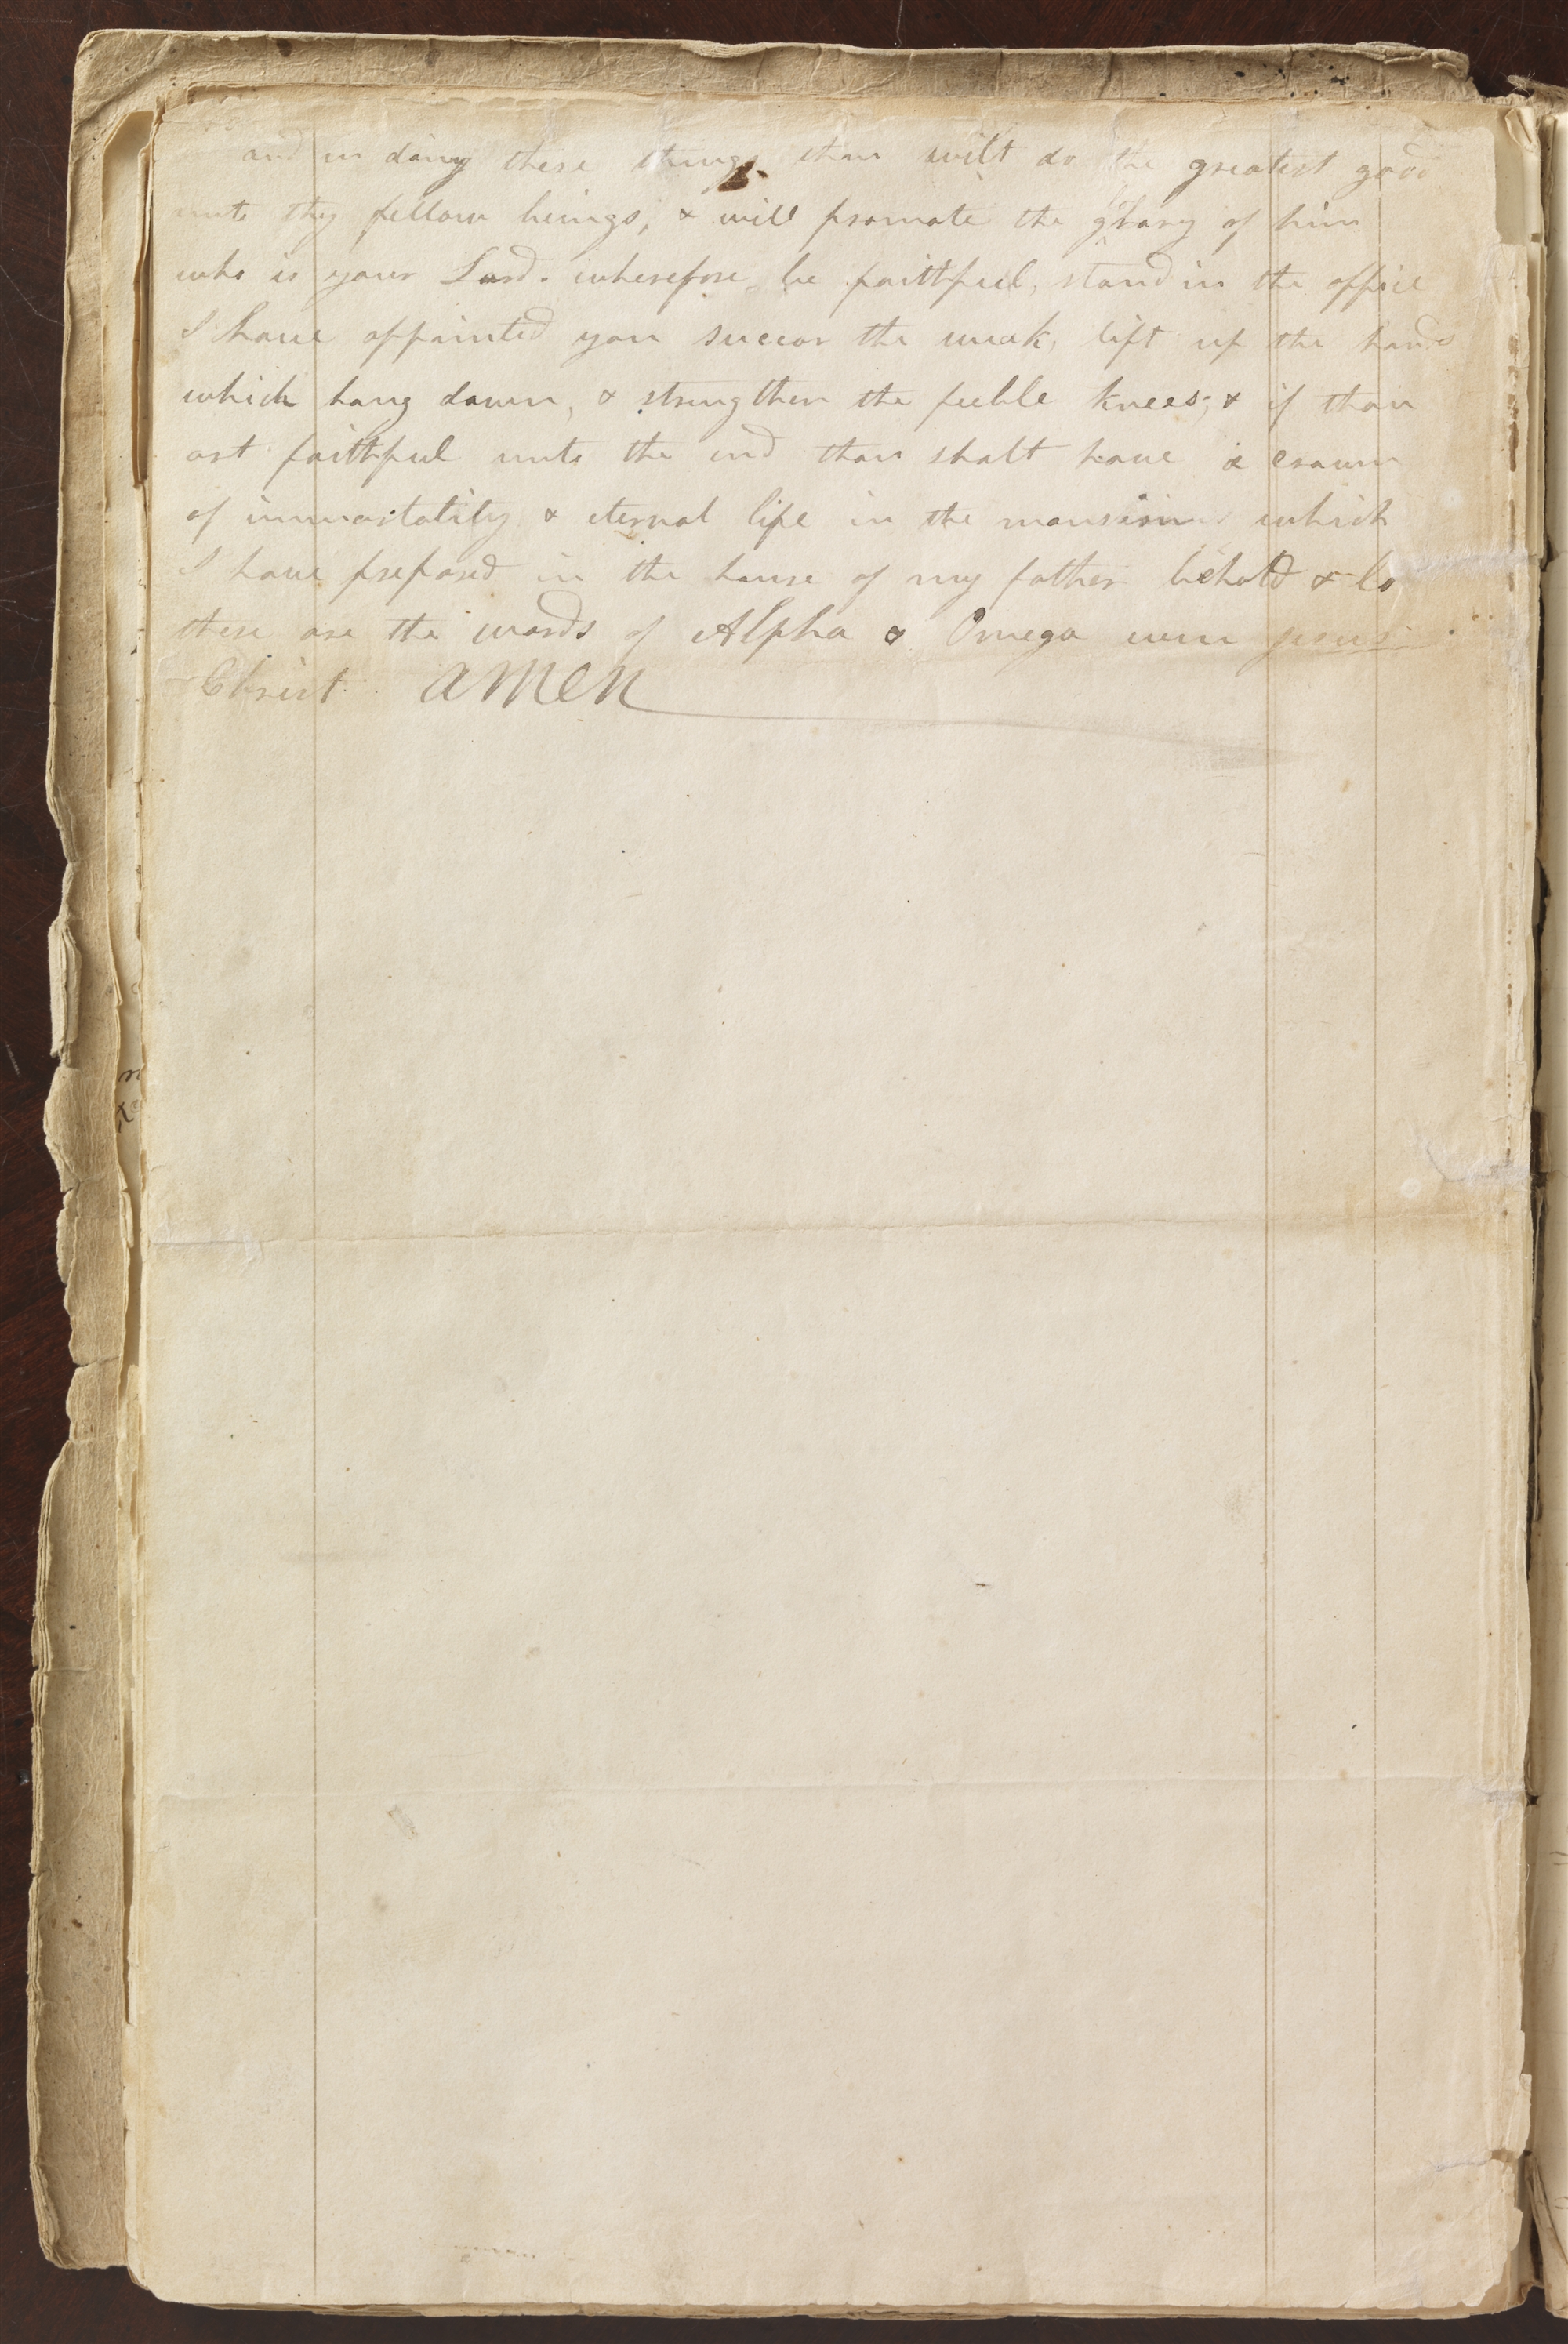 and in doing these things thou wilt do the greatest good
unto thy fellow beings, & will promote the glory of him
who is your Lord. wherefore be faithful, stand in the office
I have appointed you succor the weak, lift up the hands
which hang down, & strengthen the feeble knees; & if thou
art faithful unto the end thou shalt have a crown
of immortality & eternal life in the mansions which
I have prepared in the house of my father behold & lo
these are the words of Alpha & Omega even jesus
Christ amen